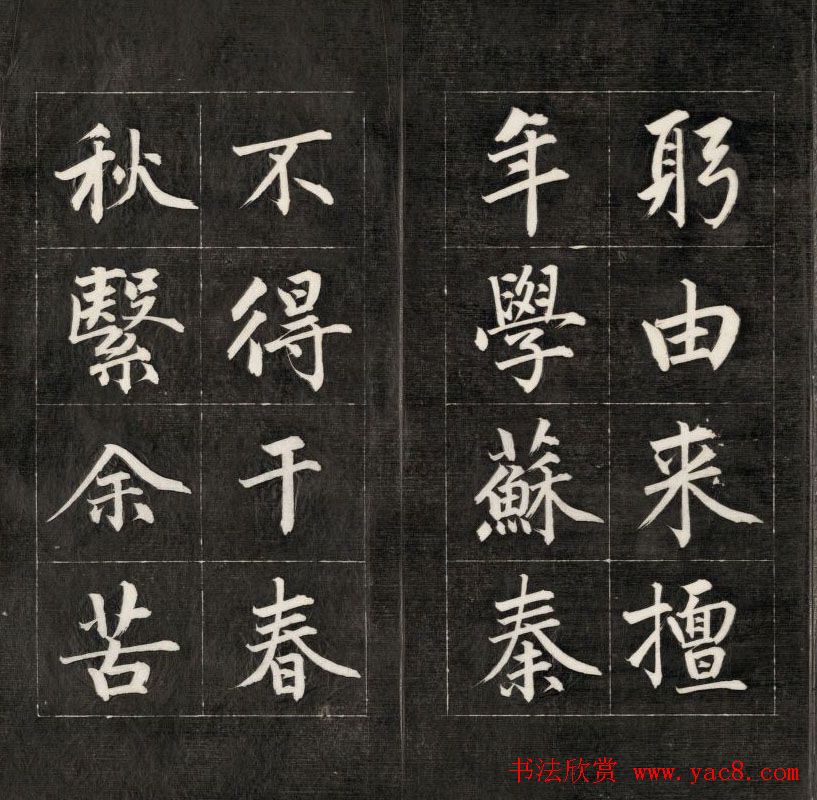 躬由来擅
年學蘇秦
不得干春
秋繫余苦
书法欣赏 www.yac8.com